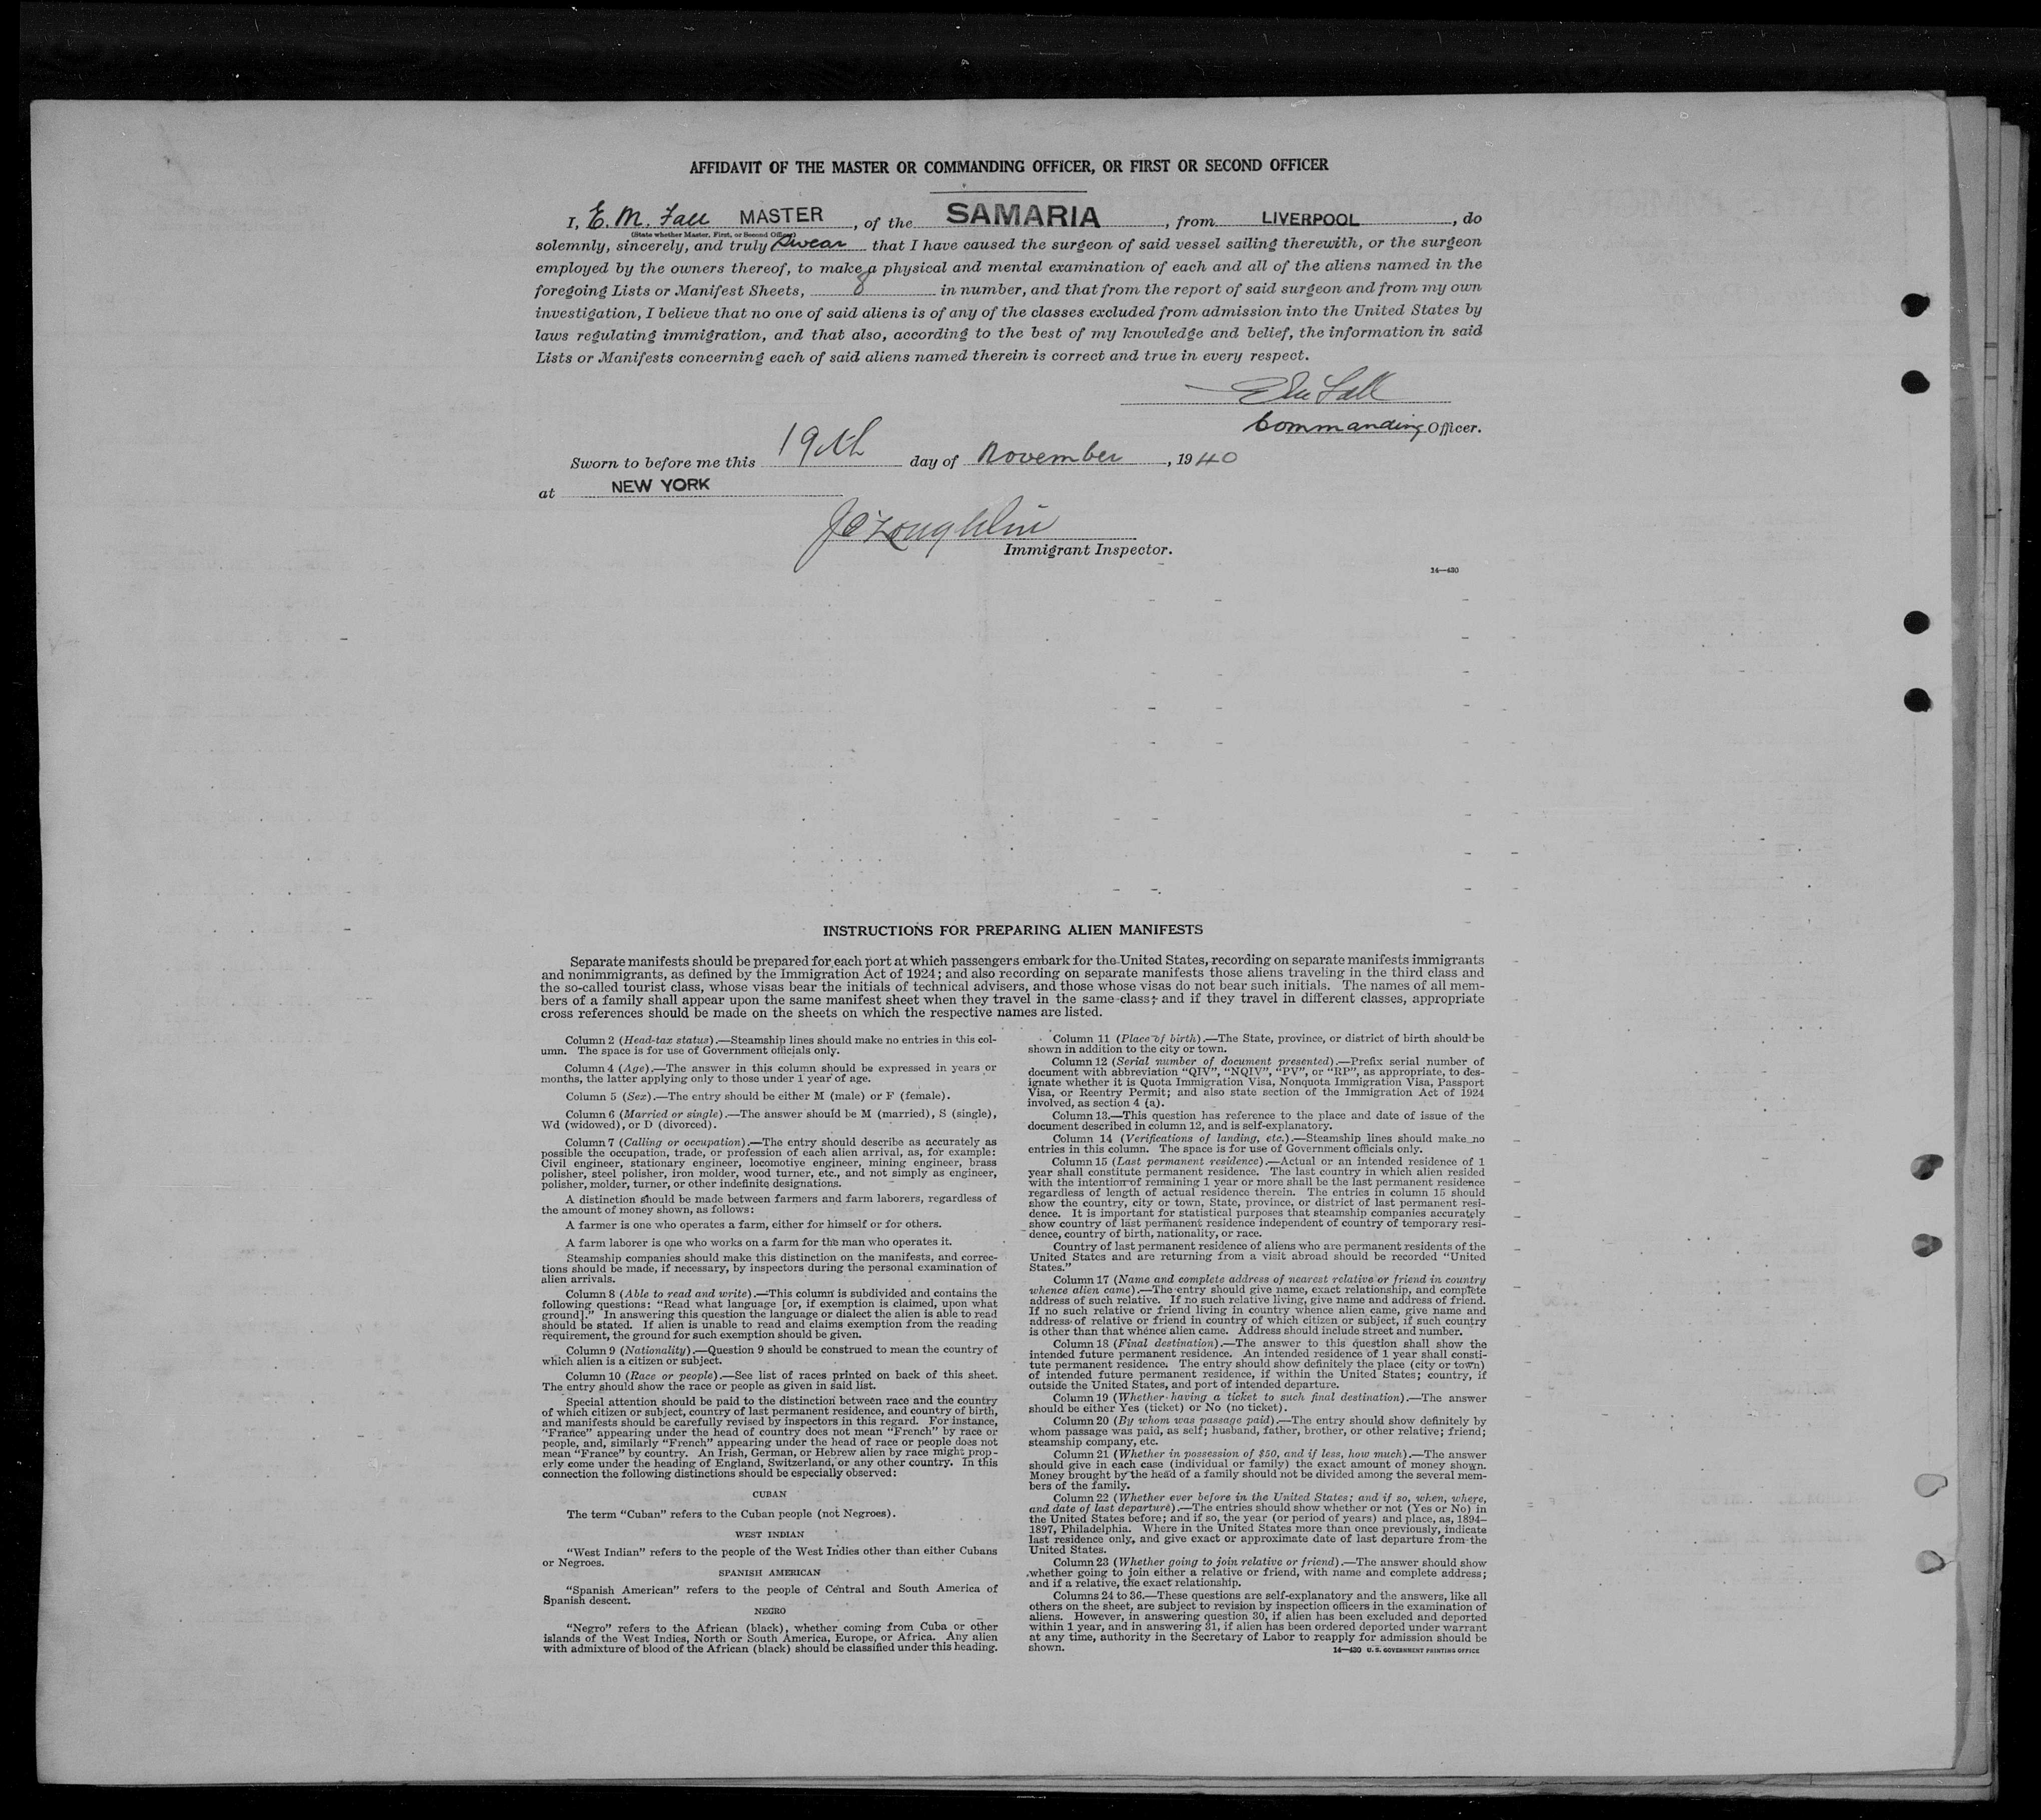 AFFIDAVIT OF THE MASTER OR COMMANDING OFFICER, OR FIRST OR SECOND OFFICER
I, E. M. Fall MASTER, of the SAMARIA, from LIVERPOOL, do
(State whether Master, First, or Second Officer)
solemnly, sincerely, and truly swear that I have caused the surgeon of said vessel sailing therewith, or the surgeon
employed by the owners thereof, to make a physical and mental examination of each and all of the aliens named in the
foregoing Lists or Manifest Sheets, 8 in number, and that from the report of said surgeon and from my own
investigation, I believe that no one of said aliens is of any of the classes excluded from admission into the United States by
laws regulating immigration, and that also, according to the best of my knowledge and belief, the information in said
Lists or Manifests concerning each of said aliens named therein is correct and true in every respect.
EM Fall
Commanding Officer.
Sworn to before me this 19th day of November, 1940
at NEW YORK
J O'Loughlin
Immigrant Inspector.
14—430
INSTRUCTIONS FOR PREPARING ALIEN MANIFESTS
Separate manifests should be prepared for each port at which passengers embark for the United States, recording on separate manifests immigrants
and nonimmigrants, as defined by the Immigration Act of 1924; and also recording on separate manifests those aliens traveling in the third class and
the so-called tourist class, whose visas bear the initials of technical advisers, and those whose visas do not bear such initials. The names of all mem-
bers of a family shall appear upon the same manifest sheet when they travel in the same class; and if they travel in different classes, appropriate
cross references should be made on the sheets on which the respective names are listed.
Column 2 (Head-tax status).—Steamship lines should make no entries in this col-
umn. The space is for use of Government officials only.
Column 4 (Age).—The answer in this column should be expressed in years or
months, the latter applying only to those under 1 year of age.
Column 5 (Sex).—The entry should be either M (male) or F (female).
Column 6 (Married or single).—The answer should be M (married), S (single),
Wd (widowed), or D (divorced).
Column 7 (Calling or occupation).—The entry should describe as accurately as
possible the occupation, trade, or profession of each alien arrival, as, for example:
Civil engineer, stationary engineer, locomotive engineer, mining engineer, brass
polisher, steel polisher, iron molder, wood turner, etc., and not simply as engineer,
polisher, molder, turner, or other indefinite designations.
A distinction should be made between farmers and farm laborers, regardless of
the amount of money shown, as follows:
A farmer is one who operates a farm, either for himself or for others.
A farm laborer is one who works on a farm for the man who operates it.
Steamship companies should make this distinction on the manifests, and correc-
tions should be made, if necessary, by inspectors during the personal examination of
alien arrivals.
Column 8 (Able to read and write).—This column is subdivided and contains the
following questions: "Read what language [or, if exemption is claimed, upon what
ground]." In answering this question the language or dialect the alien is able to read
should be stated. If alien is unable to read and claims exemption from the reading
requirement, the ground for such exemption should be given.
Column 9 (Nationality).—Question 9 should be construed to mean the country of
which alien is a citizen or subject.
Column 10 (Race or people).—See list of races printed on back of this sheet.
The entry should show the race or people as given in said list.
Special attention should be paid to the distinction between race and the country
of which citizen or subject, country of last permanent residence, and country of birth,
and manifests should be carefully revised by inspectors in this regard. For instance,
"France" appearing under the head of country does not mean "French" by race or
people, and, similarly "French" appearing under the head of race or people does not
mean "France" by country. An Irish, German, or Hebrew alien by race might prop-
erly come under the heading of England, Switzerland, or any other country. In this
connection the following distinctions should be especially observed:
CUBAN
The term "Cuban" refers to the Cuban people (not Negroes).
WEST INDIAN
"West Indian" refers to the people of the West Indies other than either Cubans
or Negroes.
SPANISH AMERICAN
"Spanish American" refers to the people of Central and South America of
Spanish descent.
NEGRO
"Negro" refers to the African (black), whether coming from Cuba or other
islands of the West Indies, North or South America, Europe, or Africa. Any alien
with admixture of blood of the African (black) should be classified under this heading.
Column 11 (Place of birth).—The State, province, or district of birth should be
shown in addition to the city or town.
Column 12 (Serial number of document presented).—Prefix serial number of
document with abbreviation "QIV", "NQIV", "PV", or "RP", as appropriate, to des-
ignate whether it is Quota Immigration Visa, Nonquota Immigration Visa, Passport
Visa, or Reentry Permit; and also state section of the Immigration Act of 1924
involved, as section 4 (a).
Column 13.—This question has reference to the place and date of issue of the
document described in column 12, and is self-explanatory.
Column 14 (Verifications of landing, etc.).—Steamship lines should make no
entries in this column. The space is for use of Government officials only.
Column 15 (Last permanent residence).—Actual or an intended residence of 1
year shall constitute permanent residence. The last country in which alien resided
with the intention of remaining 1 year or more shall be the last permanent residence
regardless of length of actual residence therein. The entries in column 15 should
show the country, city or town, State, province, or district of last permanent resi-
dence. It is important for statistical purposes that steamship companies accurately
show country of last permanent residence independent of country of temporary resi-
dence, country of birth, nationality, or race.
Country of last permanent residence of aliens who are permanent residents of the
United States and are returning from a visit abroad should be recorded "United
States."
Column 17 (Name and complete address of nearest relative or friend in country
whence alien came).—The entry should give name, exact relationship, and complete
address of such relative. If no such relative living, give name and address of friend.
If no such relative or friend living in country whence alien came, give name and
address of relative or friend in country of which citizen or subject, if such country
is other than that whence alien came. Address should include street and number.
Column 18 (Final destination).—The answer to this question shall show the
intended future permanent residence. An intended residence of 1 year shall consti-
tute permanent residence. The entry should show definitely the place (city or town)
of intended future permanent residence, if within the United States; country, if
outside the United States, and port of intended departure.
Column 19 (Whether having a ticket to such final destination).—The answer
should be either Yes (ticket) or No (no ticket).
Column 20 (By whom was passage paid).—The entry should show definitely by
whom passage was paid, as self; husband, father, brother, or other relative; friend;
steamship company, etc.
Column 21 (Whether in possession of $50, and if less, how much).—The answer
should give in each case (individual or family) the exact amount of money shown.
Money brought by the head of a family should not be divided among the several mem-
bers of the family.
Column 22 (Whether ever before in the United States; and if so, when, where,
and date of last departure).—The entries should show whether or not (Yes or No) in
the United States before; and if so, the year (or period of years) and place, as, 1894–
1897, Philadelphia. Where in the United States more than once previously, indicate
last residence only, and give exact or approximate date of last departure from the
United States.
Column 23 (Whether going to join relative or friend).—The answer should show
whether going to join either a relative or friend, with name and complete address;
and if a relative, the exact relationship.
Columns 24 to 36.—These questions are self-explanatory and the answers, like all
others on the sheet, are subject to revision by inspection officers in the examination of
aliens. However, in answering question 30, if alien has been excluded and deported
within 1 year, and in answering 31, if alien has been ordered deported under warrant
at any time, authority in the Secretary of Labor to reapply for admission should be
shown.
14—430 U. S. GOVERNMENT PRINTING OFFICE